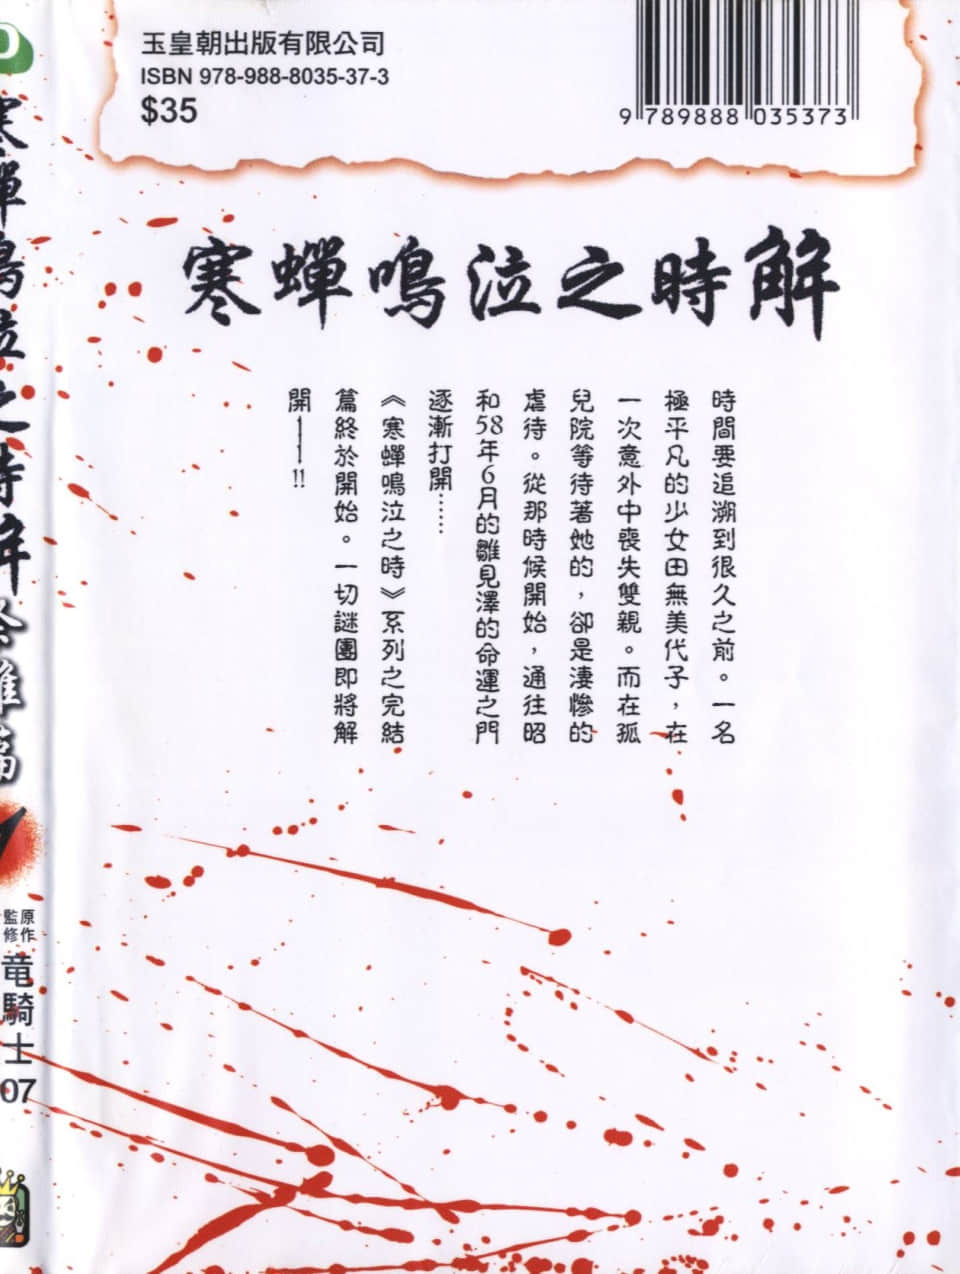 玉皇朝出版有限公司
ISBN 978-988-8035-37-3
$35
9 789888 035373
寒蟬鳴泣之時解
時間要追溯到很久之前。一名
極平凡的少女田無美代子，在
一次意外中喪失雙親。而在孤
兒院等待著她的，卻是淒慘的
虐待。從那時候開始，通往昭
和58年6月的雛見澤的命運之門
逐漸打開……
《寒蟬鳴泣之時》系列之完結
篇終於開始。一切謎團即將解
開——!!
寒蟬鳴泣之時解
原作
監修
竜騎士07